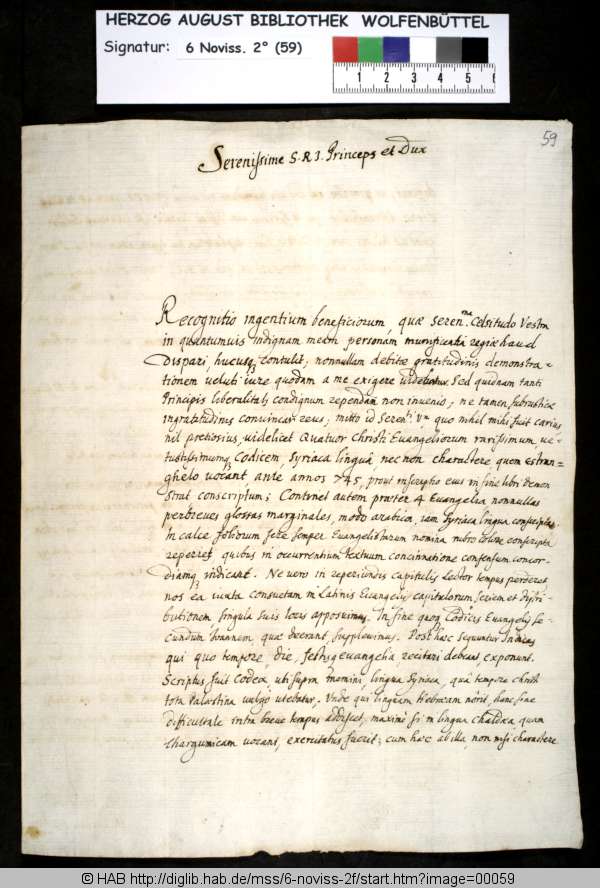 HERZOG AUGUST BIBLIOTHEK WOLFENBÜTTEL
Signatur: 6 Noviss. 2° (59)
1 2 3 4 5 6
59
Serenissime S.R.I. Princeps et Dux
Recognitio ingentium beneficiorum, quæ Seren.ma Celsitudo Vestra
in quantumuis indignam meam personam, munificentia regiæ haud
dispari, hucusq; contulit; nonnullam debitæ gratitudinis demonstra-
tionem veluti iure quodam a me exigere videbatur. Sed quidnam tanti
Principis liberalitati condignum rependam non invenio; ne tamen
ingratitudinis convincar reus; mitto id Seren.ti V.æ quo nihil mihi fuit carius
nil pretiosius, videlicet Quatuor Christi Evangeliorum rarissimum, ve-
tustissimumq; Codicem, Syriaca linguâ, nec non charactere, quem Estran-
ghelo vocant, ante annos 745, prout inscriptio eius in fine libri demon
strat conscriptum; Continet autem præter 4 Evangelia nonnullas
perbreves glossas marginales, modo arabica, iam Syriaca lingua conscriptas
In calce foliorum fere semper Evangelistarum nomina rubro colore conscripta
reperies, quibus in occurrentium textuum concinnatione consensum concor-
diamq; indicant. Ne vero in reperiundis capitulis Lector tempus perderet
nos ea iuxta consuetam in Latinis Evangelijs capitulorum seriem et distri-
butionem, singula suis locis apposuimus. In fine quoq; Codicis Evangelij se-
cundum Ioannem, quæ deerant, supplevimus. Post hæc sequuntur Indices
qui quo tempore, die, festisq; evangelia, recitari debeant, exponunt.
Scriptus fuit Codex, uti supra memini, lingua Syriaca, quâ tempore Christi
tota Palæstina vulgo utebatur. Unde qui linguam Hebræam nôrit, hanc sine
difficultate intra breve tempus addiscet; maxime si in lingua chaldæa, quam
thargumicam vocant, exercitatus fuerit; cum hæc ab illa, non nisi charactere
© HAB http://diglib.hab.de/mss/6-noviss-2f/start.htm?image=00059